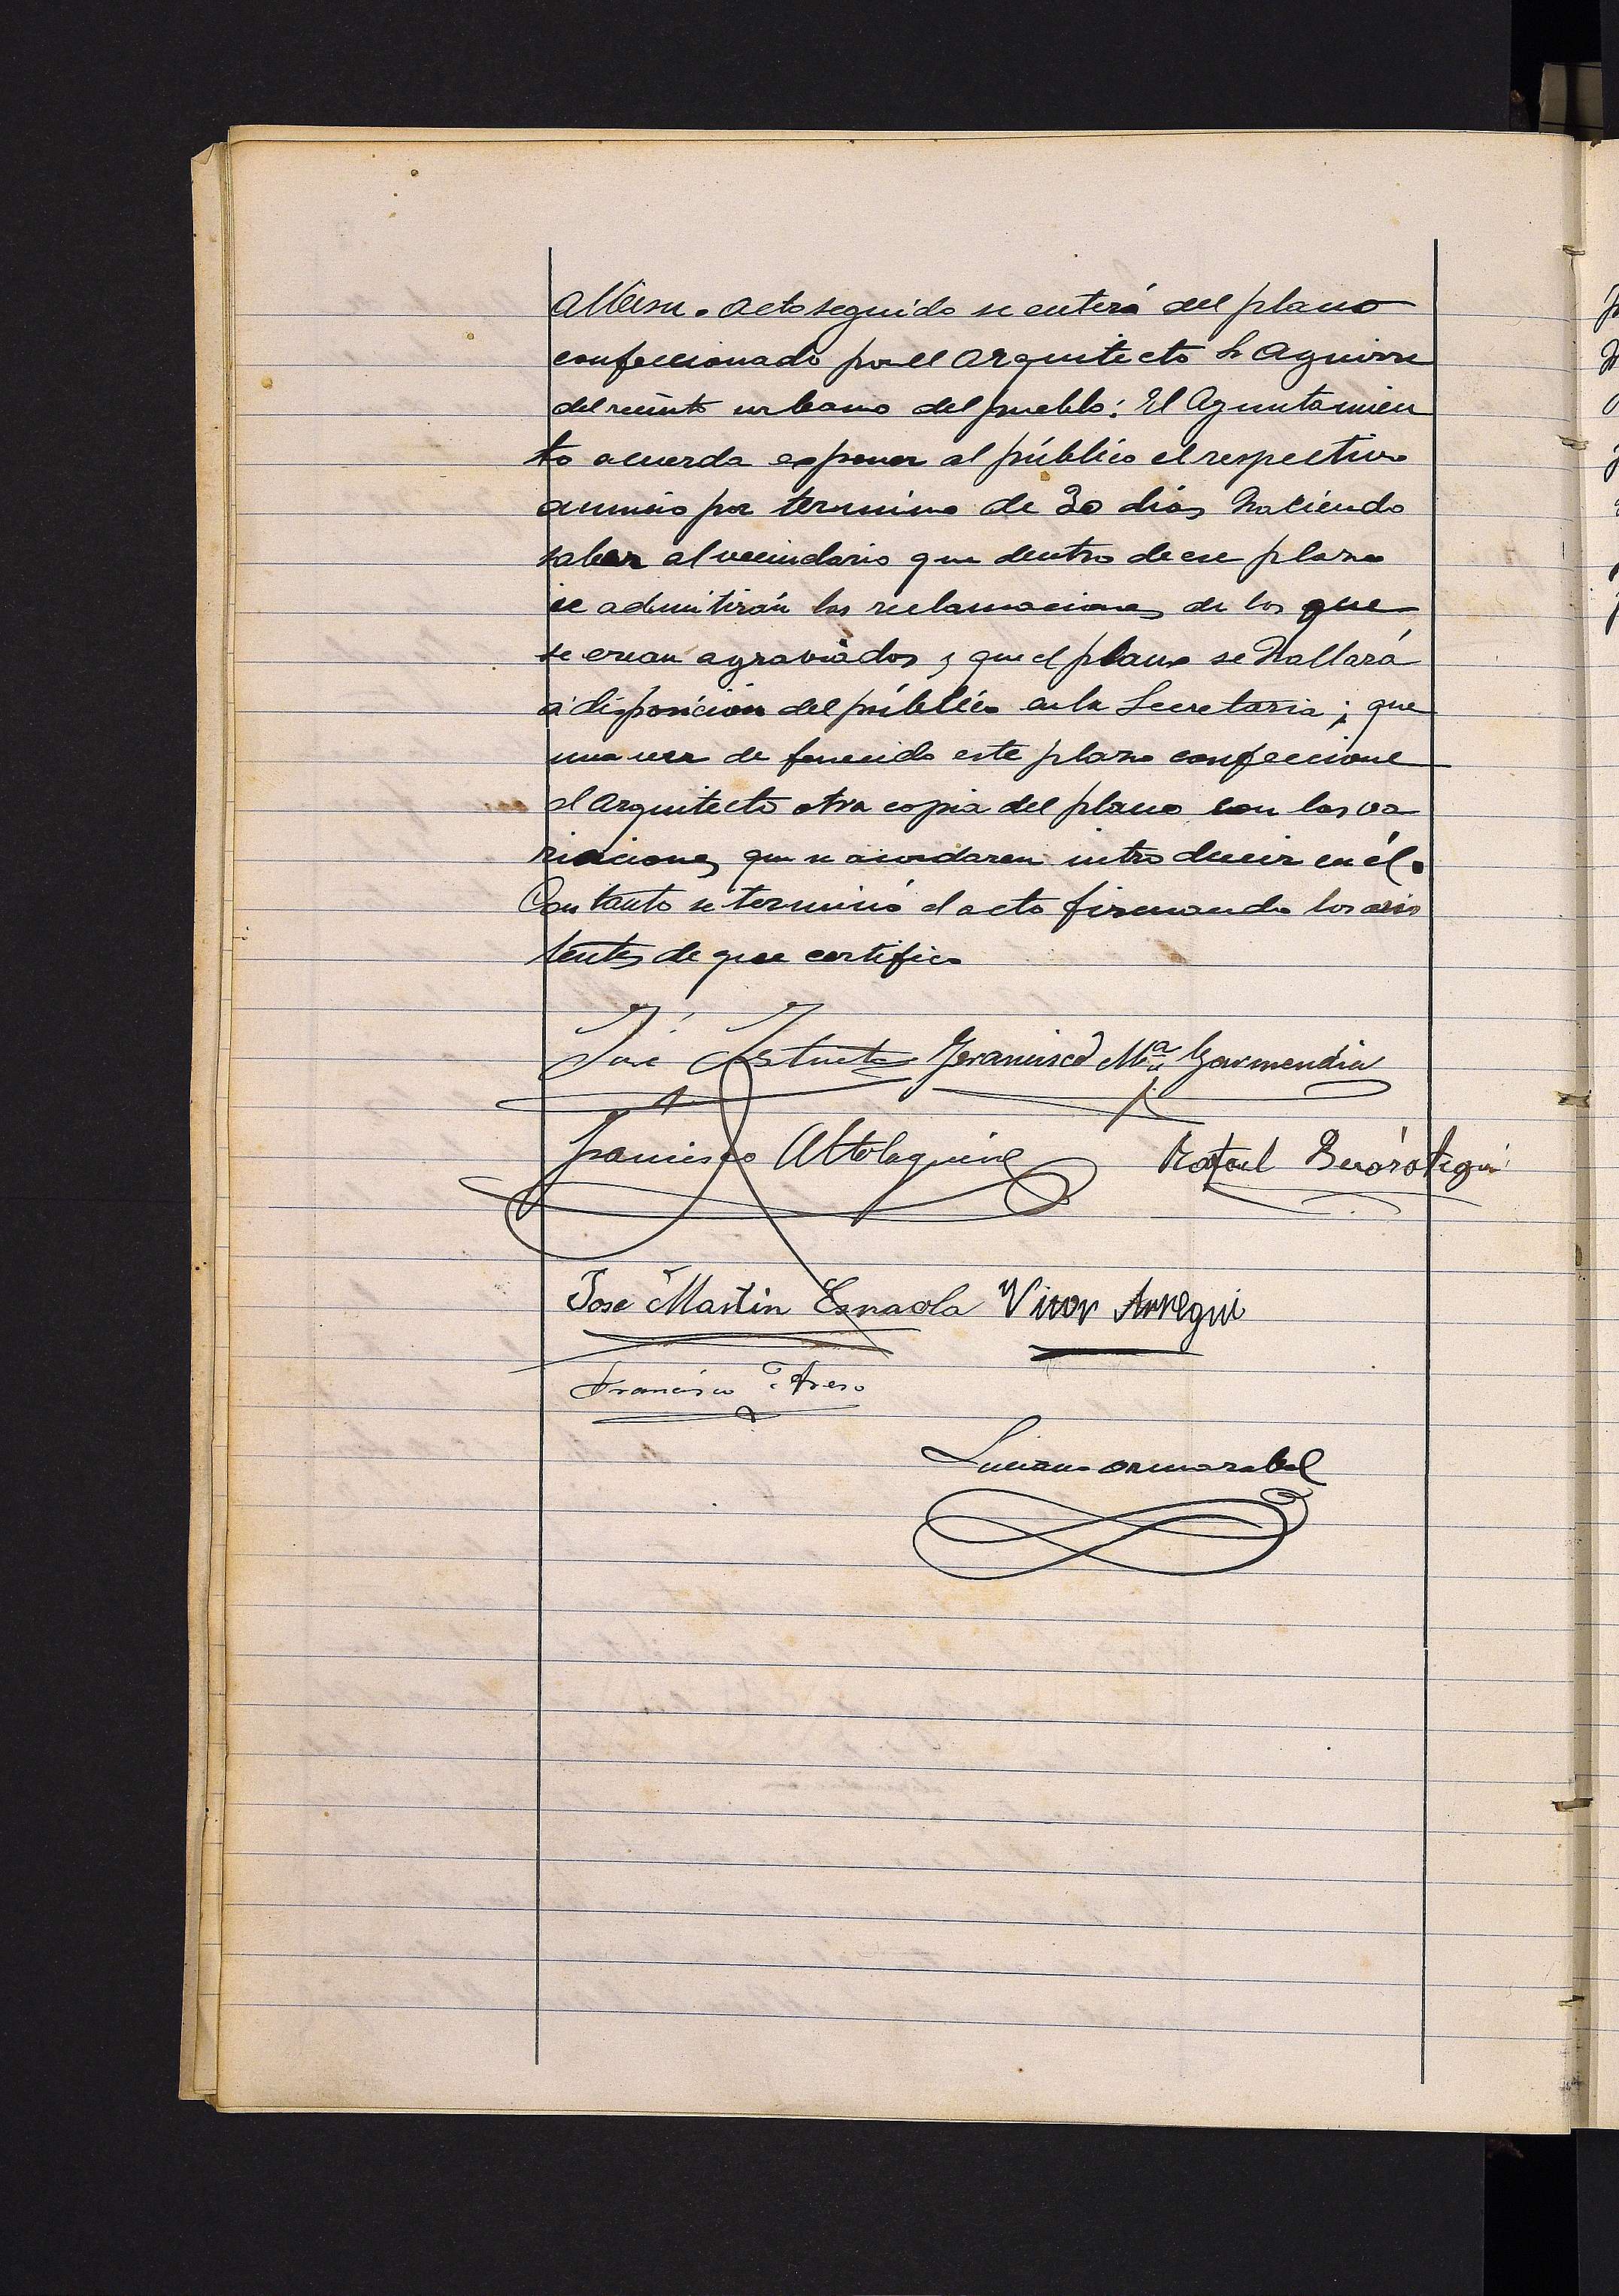 Acto seguido se enteró del plano
confeccionado por el Arquitecto Sr Aguirre
del recinto urbano del pueblo: El Ayuntamien
to acuerda exponer al público el respectivo
anuncio por termino de 30 dias haciendo
saber al vecindario que dentro de ese plazo
se admitirán las reclamaciones de los que
se crean agraviados y que el plano se hallará
á disposicion del público en la Secretaria; que
una vez de fenecido este plazo confeccione
el Arquitecto otra copia del plano con las va
riaciones que se acordaren introducir en él.
Con tanto se terminó el acto firmando los asis
tentes de que certifico
José Francisco Mª Garmendia
Francisco Altolaguirre Rafael
Jose Martin Esnaola Vitor Arregui
Francisco
Luciano Ormazabal